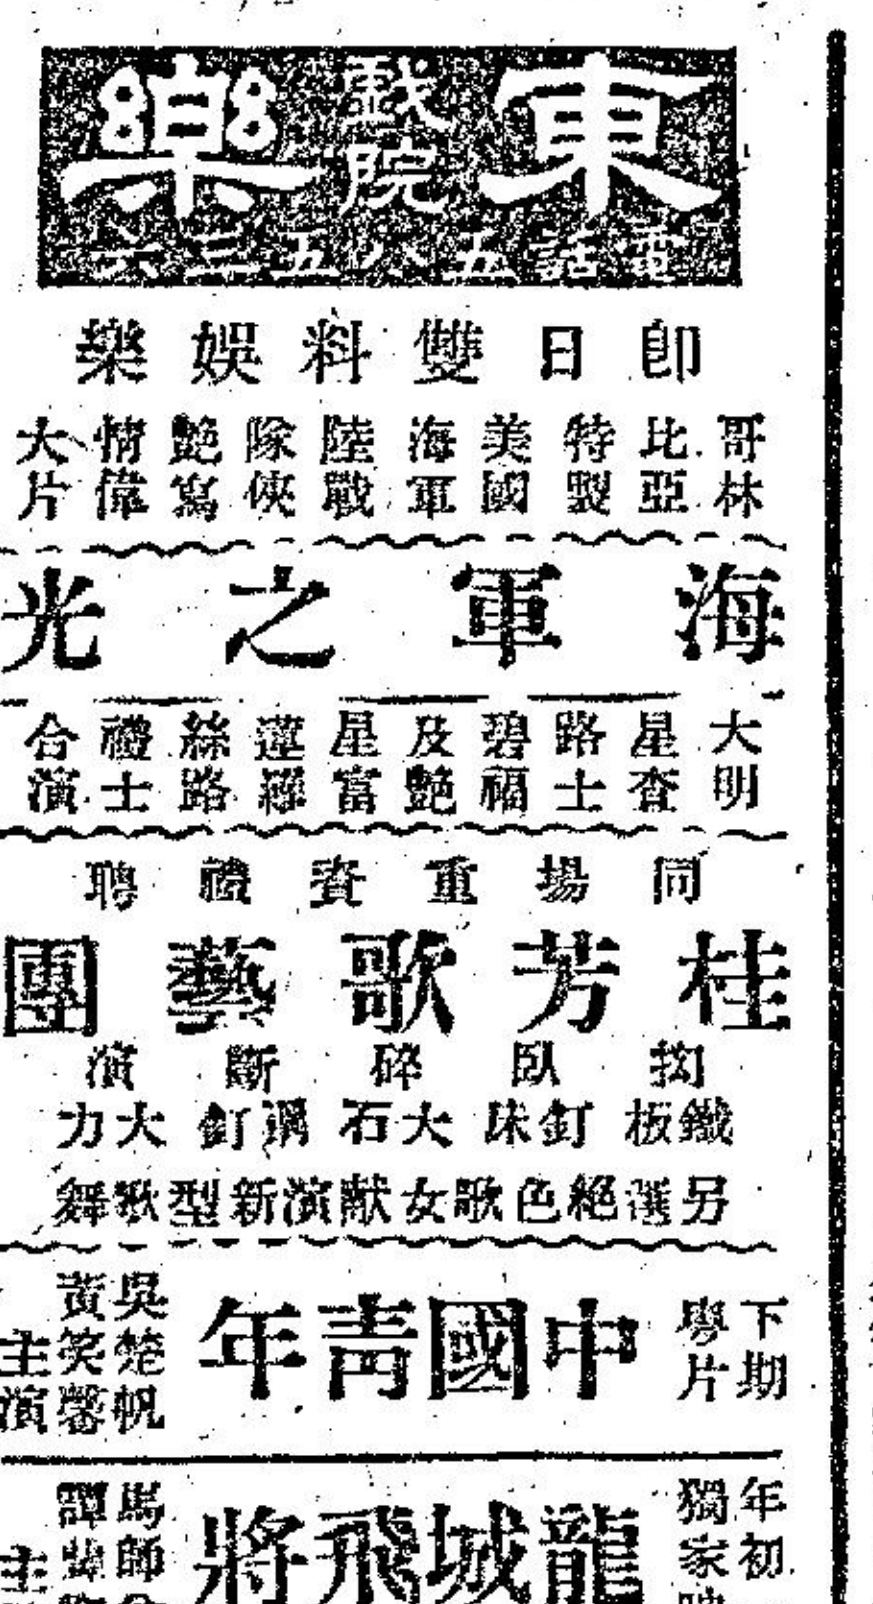 東樂戲院
電話五八五三六
即日雙料娛樂
哥林比亞特製美國海軍陸戰隊俠艷寫情偉大片
海軍之光
大明星查路士碧福及艷星富蓮絲路禮士合演
同場重資禮聘
桂芳歌藝團
臥碎斷演
鐵板釘床大石鋼釘大力
另選絕色歌女献演新型歌舞
下期
學片
中國靑年
吳楚帆
黃笑馨
主演
年初
獨家
龍城飛將
馬師
譚
主